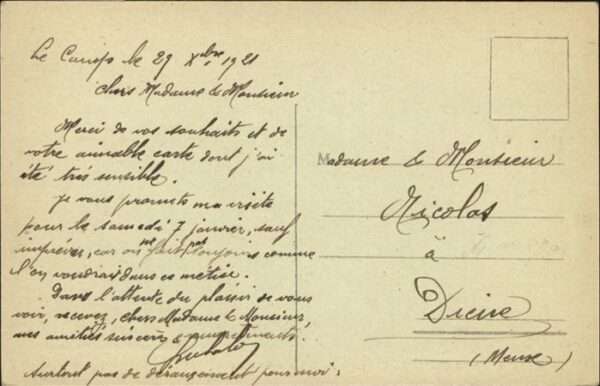 le 29 Xbre 1921
Chers Madame & Monsieur
Merci de vos souhaits et de
votre aimable carte dont j'ai
été très sensible.
Je vous promets ma visite
pour le samedi 7 janvier, sauf
imprévu, car on ne fait pas toujours comme
l'on voudrait dans ce métier.
Dans l'attente du plaisir de vous
voir, recevez, chers Madame & Monsieur,
mes amitiés sincères &
Surtout pas de dérangement pour moi.
Madame & Monsieur
Nicolas
à
Dieue
(Meuse)